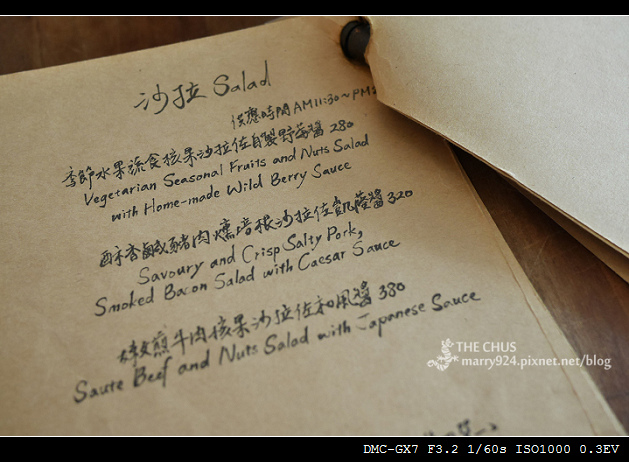 沙拉 Salad
供應時間 AM11:30~PM
季節水果蔬食核果沙拉佐自製野莓醬 280
Vegetarian Seasonal Fruits and Nuts Salad
with Home-made Wild Berry Sauce
酥香鹹豬肉燻培根沙拉佐凱薩醬 320
Savoury and Crisp Salty Pork,
Smoked Bacon Salad with Caesar Sauce
煎牛肉核果沙拉佐和風醬 380
Saute Beef and Nuts Salad with Japanese Sauce
THE CHUS
marry924.pixnet.net/blog
DMC-GX7 F3.2 1/60s ISO1000 0.3EV